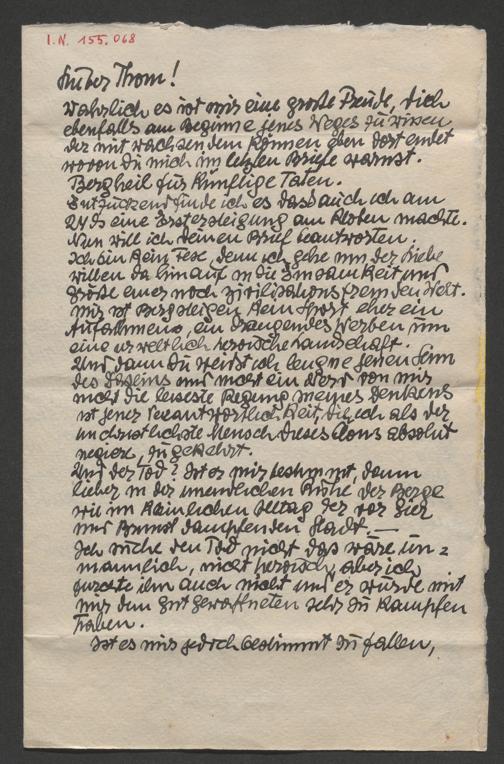 I.N. 155.068
Lieber Thom!
Wahrlich es ist mir eine große Freude, dich
ebenfalls am Beginne jenes Weges zu wissen
der mit wachsendem Können eben dort endet
wovon du mich im letzten Briefe warnst.
Bergheil für künftige Taten.
Entzückend finde ich es dass auch ich am
24 ds eine Erstersteigung am Kloben machte.
Nun will ich deinen Brief beantworten.
Ich bin kein Fex, denn ich gehe um der Liebe
willen da hinauf in die Einsamkeit und
Größe einer noch zivilisationsfremden Welt.
Mir ist Bergsteigen kein Sport eher ein
Aufatmen, ein drängendes Werben um
eine urweltlich heroische Landschaft.
Und dann du weisst ich leugne jenen Sinn
des Daseins und nicht ein Wort von mir
nicht die leiseste Regung meines Denkens
ist jener Verantwortlichkeit, die ich als der
unchristlichste Mensch dieses Äons absolut
negiere, zugekehrt.
Und der Tod? Ist er mir bestimmt, dann
lieber in der unendlichen Ruhe der Berge
wie im kleinlichen Alltag der vor Gier
und Brunst dampfenden Stadt. —
Ich suche den Tod nicht das wäre un=
männlich, nicht heroisch, aber ich
fürchte ihn auch nicht und er würde mit
mir dem gut gewaffneten sehr zu kämpfen
haben.
Ist es mir jedoch bestimmt zu fallen,